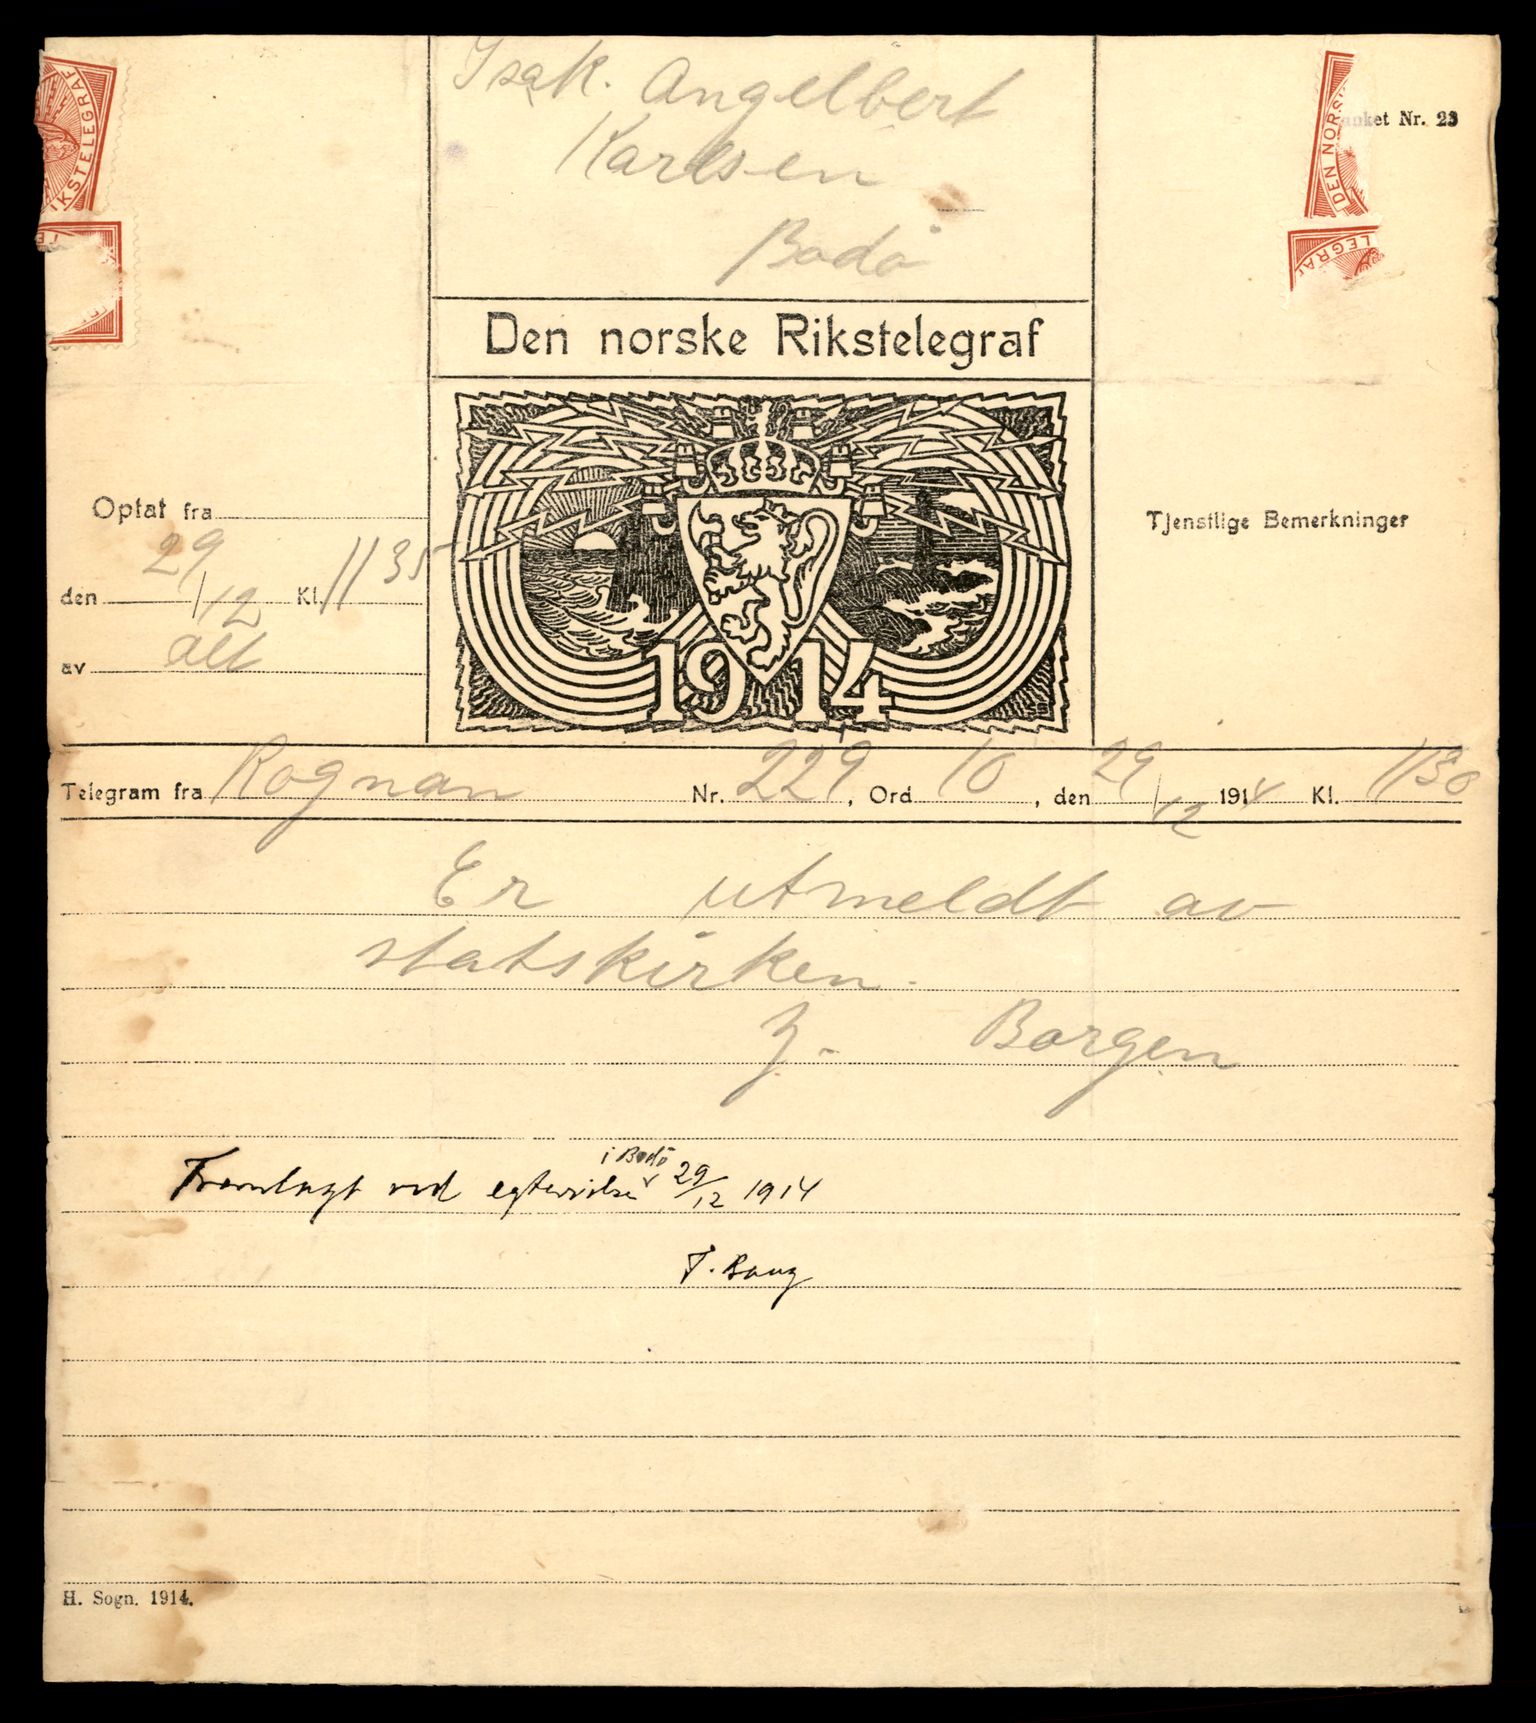 Isak. Angelbert
Karlsen
Bodö
RIKSTELEGRAF
DEN NORS
LEGRAF
anket Nr. 23
Den norske Rikstelegraf
1914
Optat fra
den 29/12 Kl. 1135
av
Tjenstlige Bemerkninger
Telegram fra Rognan Nr. 229, Ord 10, den 29/12 1914 Kl. 1130
Er utmeldt av
statskirken.
Borgen
i Bodö
Fremlagt ved egtevielse 29/12 1914
F. Bang
H. Sogn. 1914.